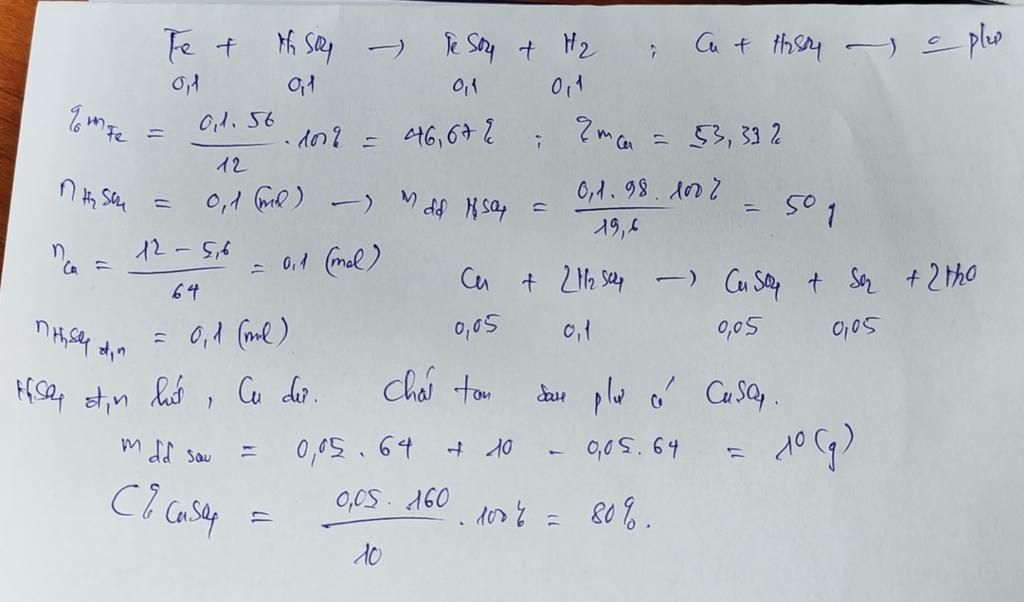 Fe + H2SO4 → FeSO4 + H2 ; Cu + H2SO4 → 0 pư
0,1 0,1 0,1 0,1
% mFe = 0,1.56 / 12 . 100% = 46,67% ; % mCu = 53,33%
nH2SO4 = 0,1 (mol) → mdd H2SO4 = 0,1.98.100% / 19,6 = 50 g
nCu = 12 - 5,6 / 64 = 0,1 (mol)
Cu + 2H2SO4 → CuSO4 + SO2 + 2H2O
0,05 0,1 0,05 0,05
nH2SO4 đ,n = 0,1 (mol)
H2SO4 đ,n hết, Cu dư. Chất tan sau pư có CuSO4.
mdd sau = 0,05.64 + 10 - 0,05.64 = 10 (g)
C% CuSO4 = 0,05.160 / 10 . 100% = 80%.